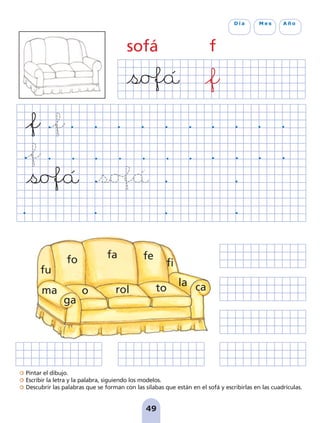 Día Mes Año
sofá f
sofá f
f f
f
sofá sofá
fu fo fa fe fi
ma ga o rol to la ca
Pintar el dibujo.
Escribir la letra y la palabra, siguiendo los modelos.
Descubrir las palabras que se forman con las sílabas que están en el sofá y escribirlas en las cuadrículas.
49